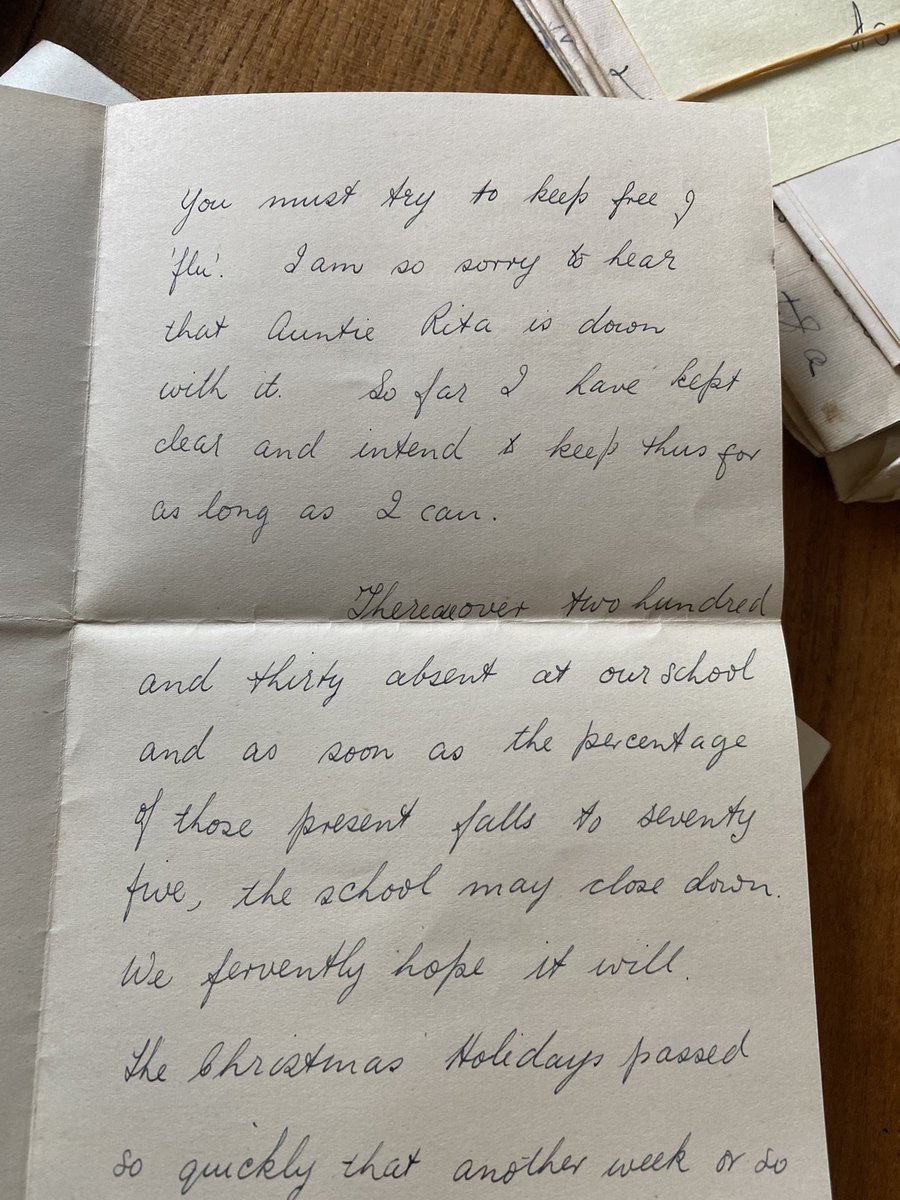 You must try to keep free of
'flu'. I am so sorry to hear
that Auntie Rita is down
with it. So far I have kept
clear and intend to keep thus for
as long as I can.
There are over two hundred
and thirty absent at our school
and as soon as the percentage
of those present falls to seventy
five, the school may close down.
We fervently hope it will.
The Christmas Holidays passed
so quickly that another week or so